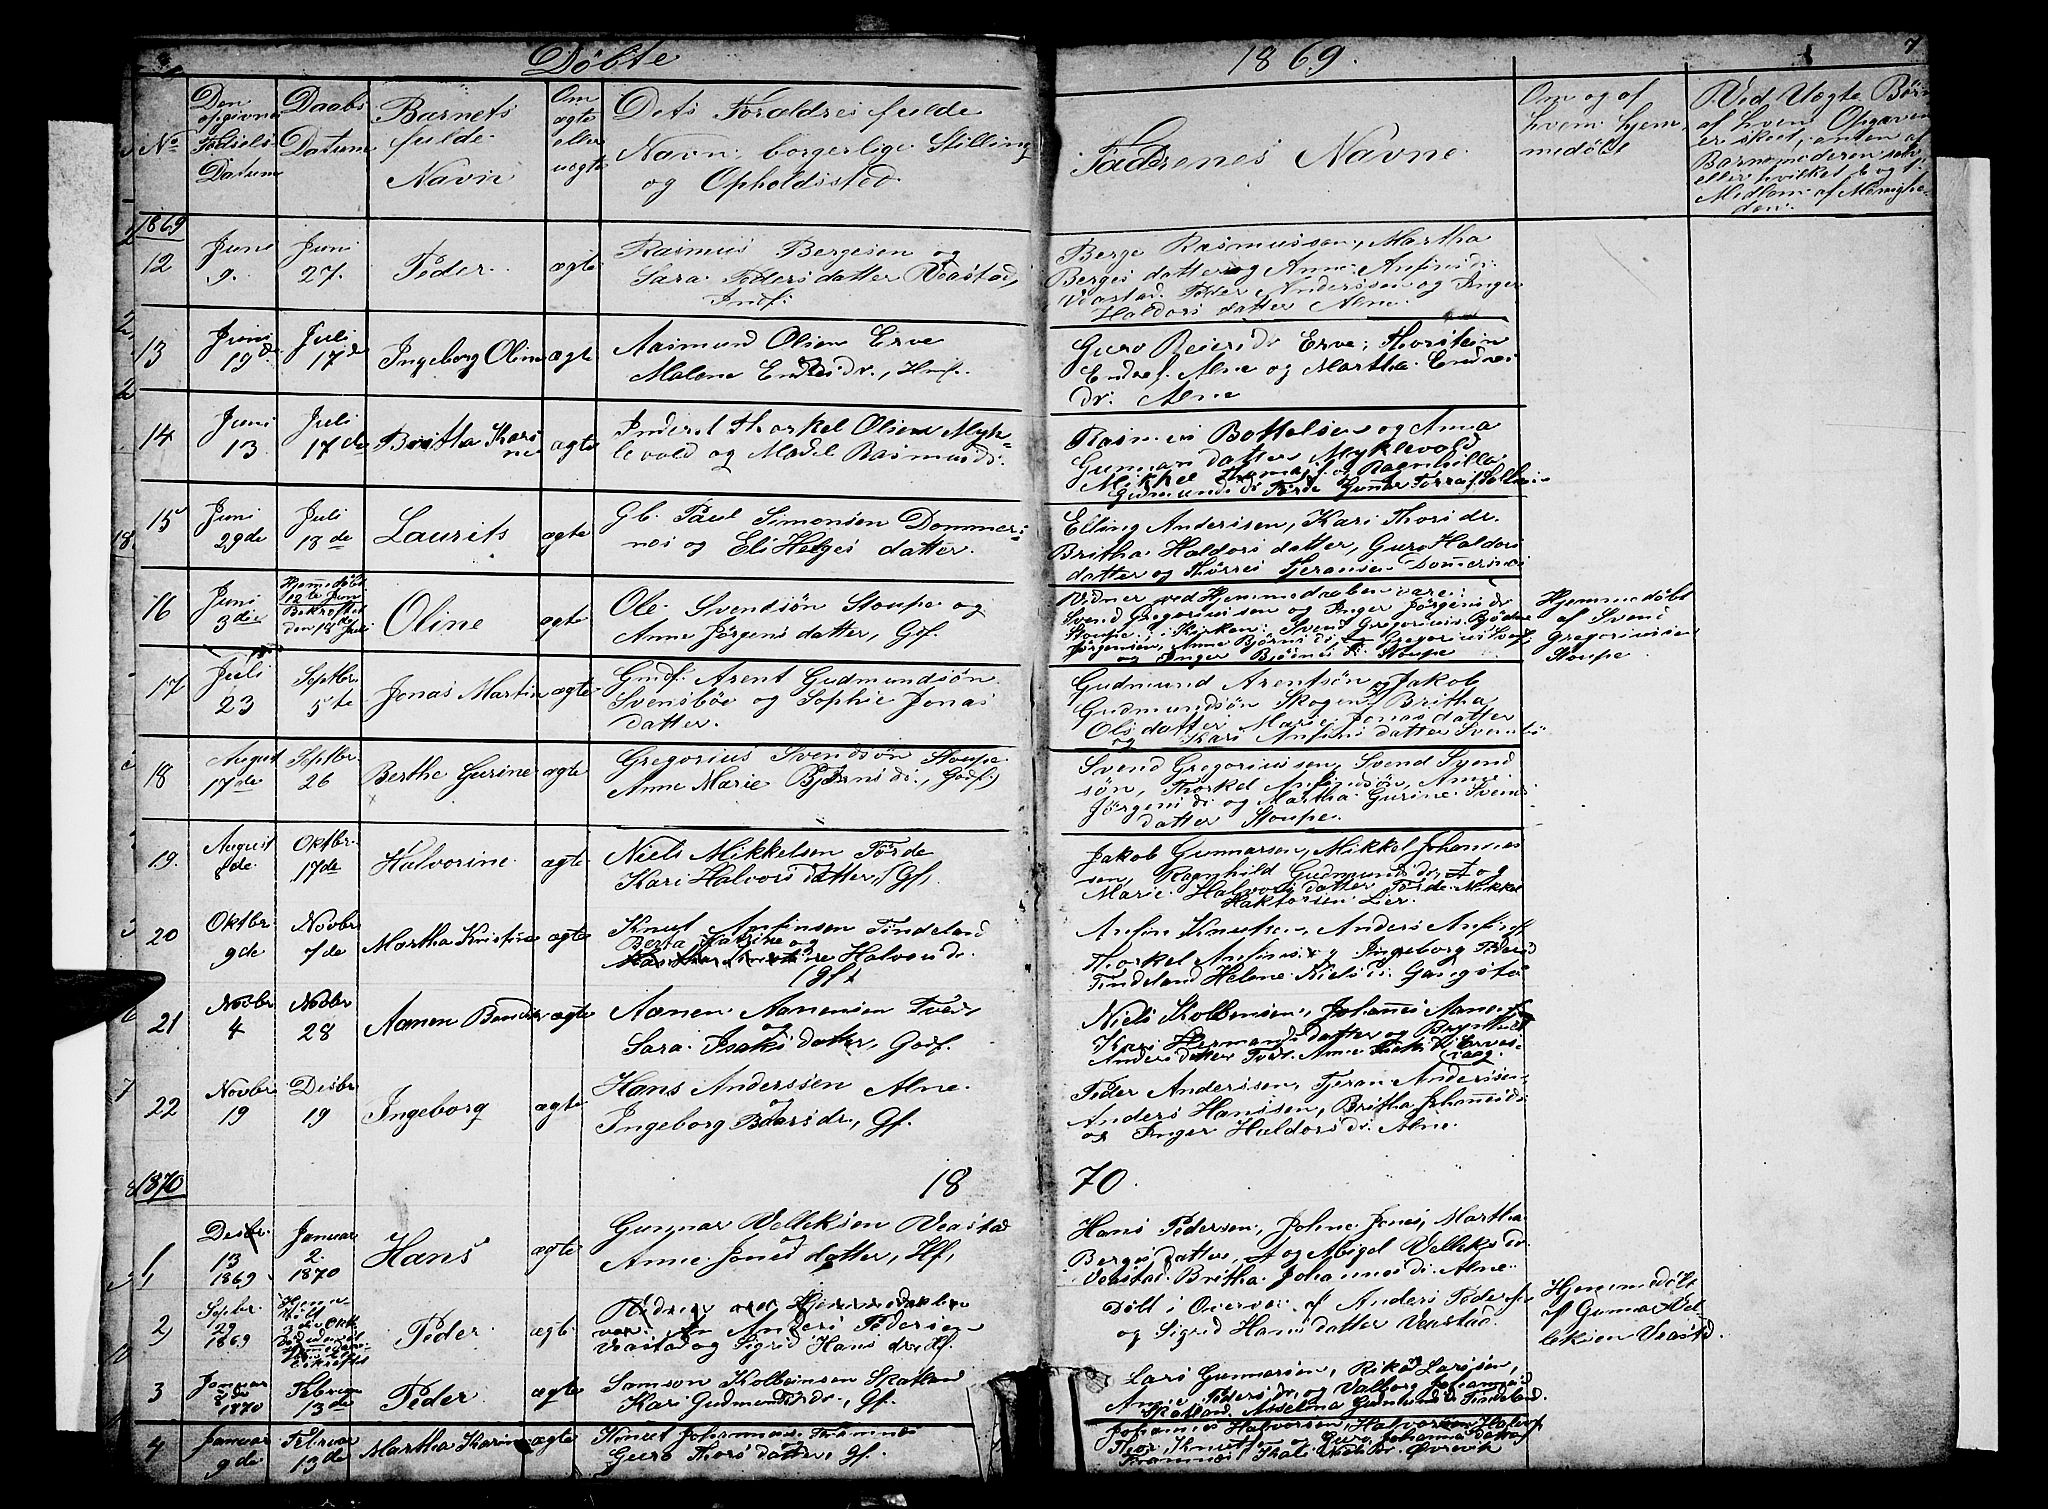 Døbte
1869.
7
No
Den opgivne Fødsels Datum
Daabs Datum
Barnets fulde Navn
Om ægte eller uægte
Dets Forældres fulde Navn, borgerlige Stilling og Opholdssted.
Faddrenes Navne.
Om og af hvem hjemmedøbt
Ved Uægte Børn af hvem Opgaven er skeet, enten af Barnemoderen selv eller hvilket
1869
12
Juni 9.
Juni 27.
Peder.
ægte
Rasmus Bergesen og
Sara Pedersdatter Veastad,
Indf.
Berge Rasmussen, Martha
Bergesdatter og Anne Anfinsdr.
Veastad. Peder Anderssen og Inger
Haldorsdatter Alne.
13
Juni 19de
Juli 17de
Ingeborg Oline
ægte
Aasmund Olsen Erve
Malene Endresdr., Hmf.
Guro Reiersdr Erve, Thorstein
Endresf. Alne og Martha Endres
dr. Alne
14
Juni 13
Juli 17de
Britha Karine
ægte
Inderst Thorkel Olsen Myk-
levold og Madel Rasmusdr.
Rasmus Bottolsen og Anna
Gunnarsdatter Myklevold
Mikkel Thomasf. og Ragnhilla
Gudmundsdr. Førde
15
Juni 29de
Juli 18de
Laurits
ægte
Gb. Paul Simonsen Dommers-
nes og Eli Helgesdatter.
Elling Anderssen, Kari Thorsdr.
Britha Haldorsdatter, Guro Haldors
datter og Thørres Tjeransen Dommersnes
16
Juni 3die
Hjemmedøbt
12te Juni
Bekræftet
den 18de Juli
Oline
ægte
Ole Svendsøn Stoupe og
Anne Jørgensdatter, Gf.
Vidner ved Hjemmedaaben vare:
Svend Gregoriussen og Inger Jørgensdr
Stoupe; i Kirken: Svend Gregorius.
Jørgensen, Anne Bjørnsdr,
og Inger Bjørnsdr. Stoupe
Hjemmedøbt
af Svend
Gregoriussen
Stoupe.
17
Juli 23
Septbr. 5te
Jonas Martin
ægte
Gmf. Arent Gudmundsøn
Svensbøe og Sophie Jonas
datter.
Gudmund Arentsøn, Jakob
Gudmundsøn Skogen, Britha
Olsdatter, Marie Jonasdatter
og Kari Anfinsdatter Svensbø
18
August 17de
Septbr. 26
Berthe Gurine
ægte
Gregorius Svendsøn Stoupe.
Anne Marie Bjørnsdr., Gdf.
Svend Gregoriussen, Svend Svend
søn, Thorkel Anfindsøn, Anne
Jørgensdr og Martha Gurine Svends
datter Stoupe.
19.
August 8de.
Oktbr. 17de
Halvorine.
ægte
Niels Mikkelsen Førde
Kari Halvorsdatter, Gf.
Jakob Gunnarsen, Mikkel Johannes
sen, Ragnhild Gudmundsdr, og
Marie Halvorsdatter Førde. Mikkel
Haktorsen Lier.
20
Oktbr. 9de
Novbr. 7de
Martha Kristine
ægte
Knut Anfinsen Tindeland
Berta Katrine og
Halvorsdr.
Gf.
Anfin Knutsen, Anders Anfinsf.
Thorkel Anfinsf. Ingeborg Pedersd
Tindeland Helene Nielsdr. Gangstø
21
Novbr 4
Novbr 28
Aanen Bendik
ægte
Aanen Aanensen Tvedt,
og
Sara Isaksdatter, Godf.
Niels Kolbensen, Johannes Aanensf.
Kari Hermansdatter og Brynhild
Andersdatter Tvedt.
22
Novbr 19
Desbr. 19
Ingeborg
ægte
Hans Anderssen Alne.
og
Ingeborg Baarsdr., Gf.
Peder Andersen, Tjeran Andersen
Anders Hanssen, Britha Johannesdr
og Inger Haldorsdr. Alne.
1870
18
70.
1
Desbr. 13 1869
Januar 2 1870
Hans
ægte
Gunnar Velleksen Veastad
Anne Jonesdatter, Hf,
Hans Pedersen, Johne Jones, Martha
Bergesdatter, og Abigel Velleksdr.
Veastad. Britha Johannesdr. Alne.
2,
Septbr. 29 1869
Peder.
ægte
Anders Pedersen
Veastad og Sigrid Hansdr, Hf.
Døbt i Overvær af Anders Pedersen
og Sigrid Hansdatter Veastad.
Hjemmedøbt
af Gunnar Vel-
leksen Veastd.
3
Januar 1870
Februar 13de
Peder
ægte
Samson Kolbensen Skatland
Kari Gudmundsdr., Gf.
Lars Gunnarsen, Rikard Larssen,
Anne Pedersdr, og Valborg Johannesd
Skatland. Asselina Tindeland.
4
Januar 9de
Februar 13de
Martha Karine
ægte
Knut Johannes. Framnes
Guro Thorsdatter, Gf.
Johannes Halvorsen, Halvorsen
Thor Knuts og Guro Johannesdatter
Framnes. Øvrevik